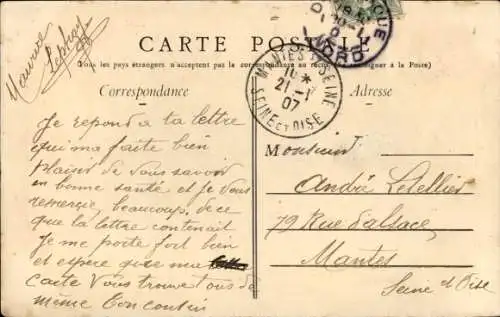 Maurice
CARTE POSTALE
(Tous les pays étrangers n'acceptent pas la correspondance au recto, se renseigner à la Poste)
Correspondance
Adresse
MANTES S SEINE
10 *
21 - 1
07
SEINE ET OISE
NORD
Je repond a ta lettre
qui ma faite bien
plaisir de vous savoir
en bonne santé et je vous
remercie beaucoup de ce
que la lettre contenait
Je me porte fort bien
et espere que ma
carte vous trouve tous de
même Ton cousin
Monsieur
André Letellier
79 Rue d'alsace
Mantes
Seine et Oise